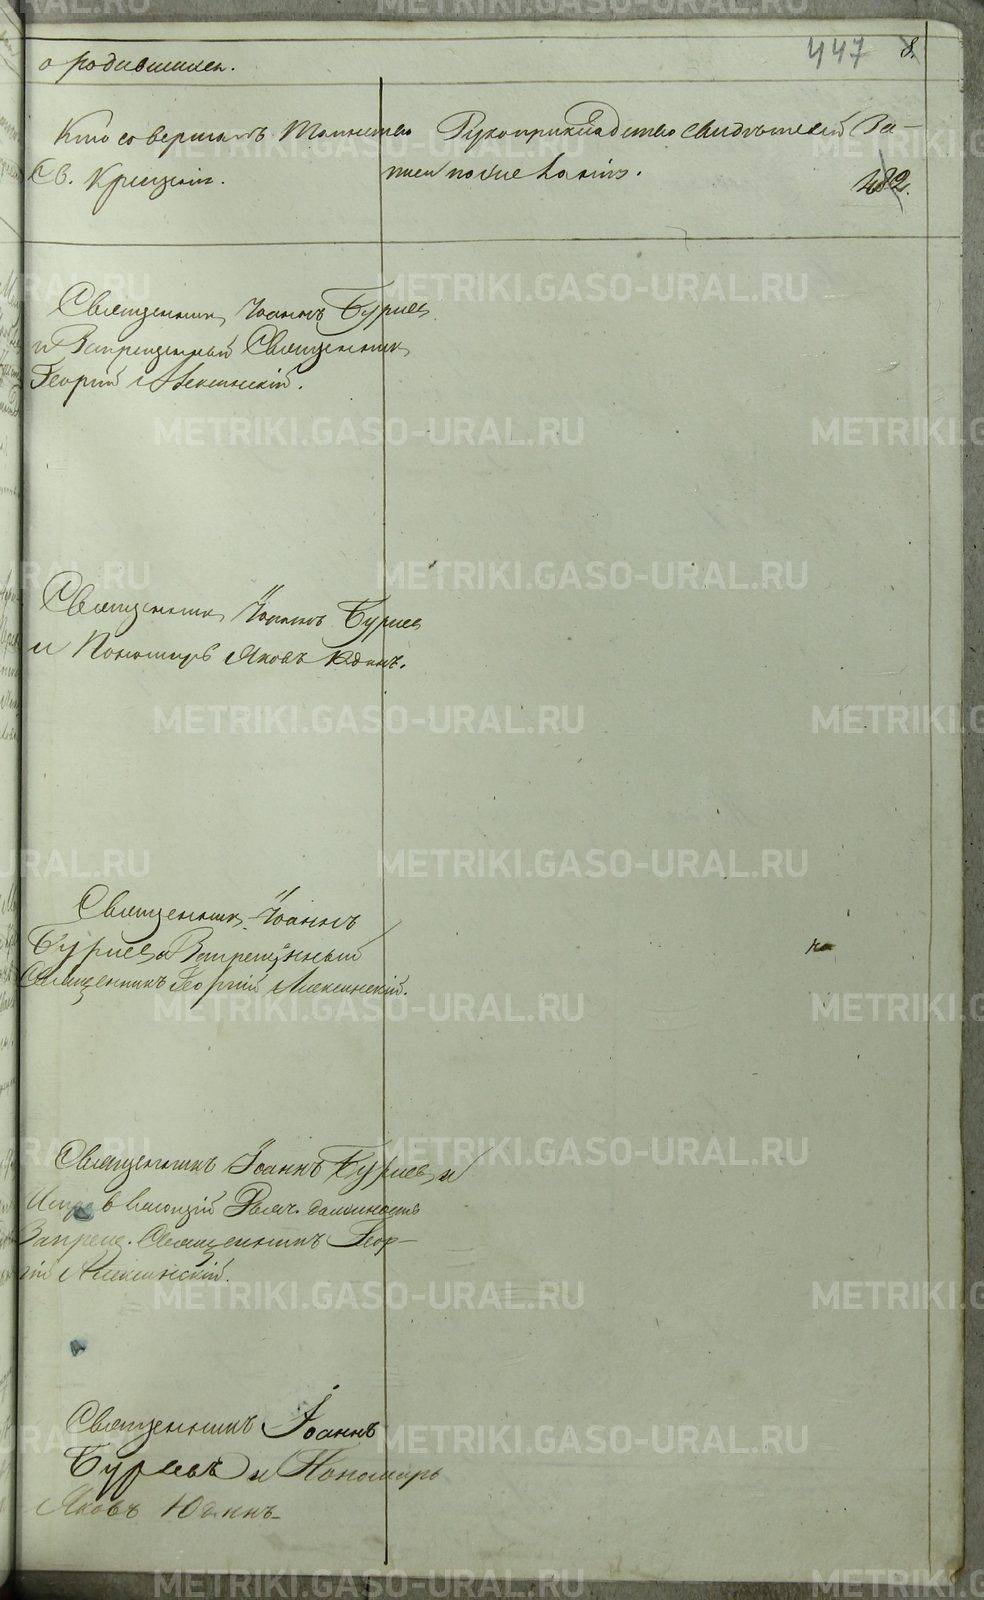 447 8.
о родившихся.
Кто совершалъ Таинство
Св. Крещенія.
Рукоприкладство свидѣтелей За-
писи по желанію.
Священникъ Іоаннъ Буриевъ
и Запрещенный Священникъ
Георгій Алексинскій.
Священникъ Іоаннъ Буриевъ
и Пономарь Яковъ Юдинъ.
Священникъ Іоаннъ
Буриевъ и Запрещенный
Священникъ Георгій Алексинскій.
Священникъ Іоаннъ Буриевъ и
должность
Запрещ. Священникъ Геор-
гій Алексинскій.
Священникъ Іоаннъ
Буриевъ и Пономарь
Яковъ Юдинъ
METRIKI.GASO-URAL.RU